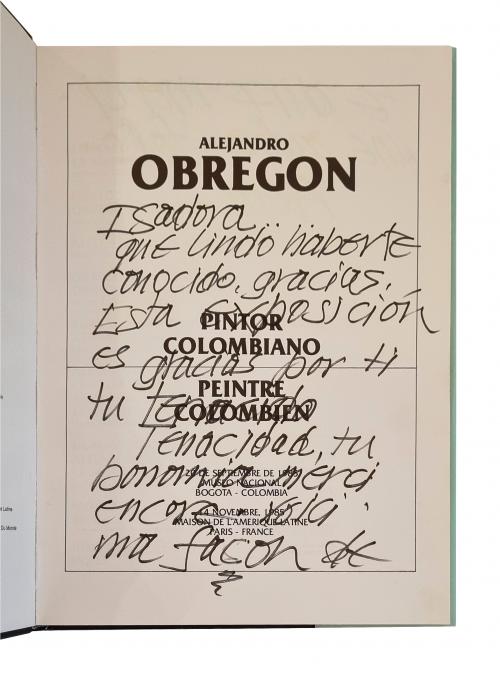 ALEJANDRO
OBREGON
Isadora..
que lindo haberte
conocido. gracias.
Esta exposición
PINTOR
COLOMBIANO
es gracias por ti
PEINTRE
COLOMBIEN
tu
Tenacidad, tu
20 DE SEPTIEMBRE DE 1985
MUSEO NACIONAL
BOGOTA - COLOMBIA
bonomia merci
encore
14 NOVEMBRE, 1985
MAISON DE L'AMERIQUE LATINE
PARIS - FRANCE
ma façon
Latina
Du Monde